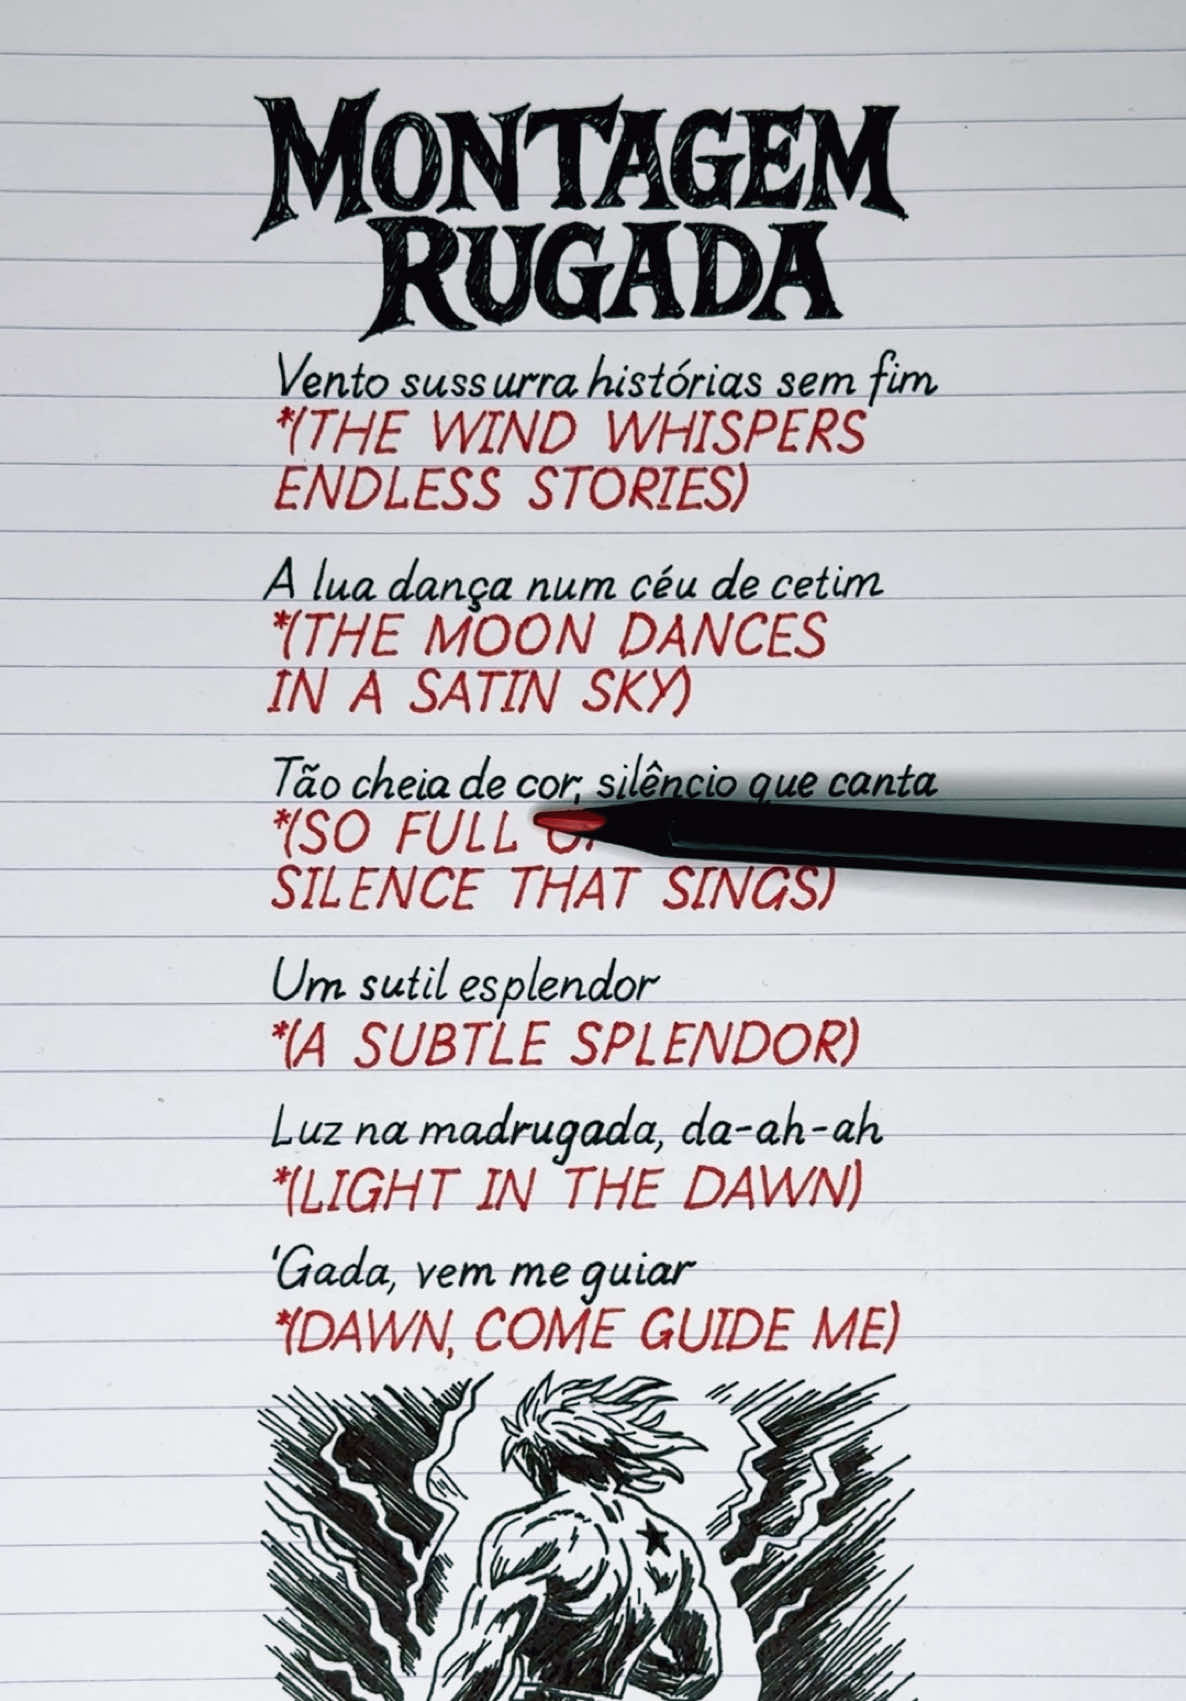 MONTAGEM
RUGADA
Vento sussurra histórias sem fim
*(THE WIND WHISPERS
ENDLESS STORIES)
A lua dança num céu de cetim
*(THE MOON DANCES
IN A SATIN SKY)
Tão cheia de cor, silêncio que canta
*(SO FULL
SILENCE THAT SINGS)
Um sutil esplendor
*(A SUBTLE SPLENDOR)
Luz na madrugada, da-ah-ah
*(LIGHT IN THE DAWN)
'Gada, vem me guiar
*(DAWN, COME GUIDE ME)